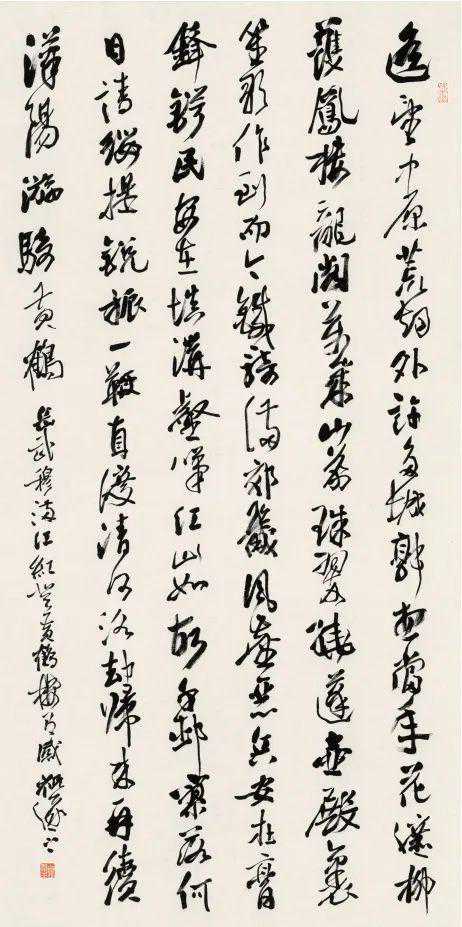 遙望中原荒烟外許多城郭想當年花遮柳
護鳳樓龍閣萬歲山前珠翠繞蓬壺殿裏
笙歌作到而今鐵騎滿郊畿風塵惡兵安在膏
鋒鍔民安在填溝壑嘆江山如故千邨寥落何
日請纓提銳旅一鞭直渡清河洛却歸來再續
漢陽游騎黃鶴 岳武穆滿江紅登黃鶴樓有感